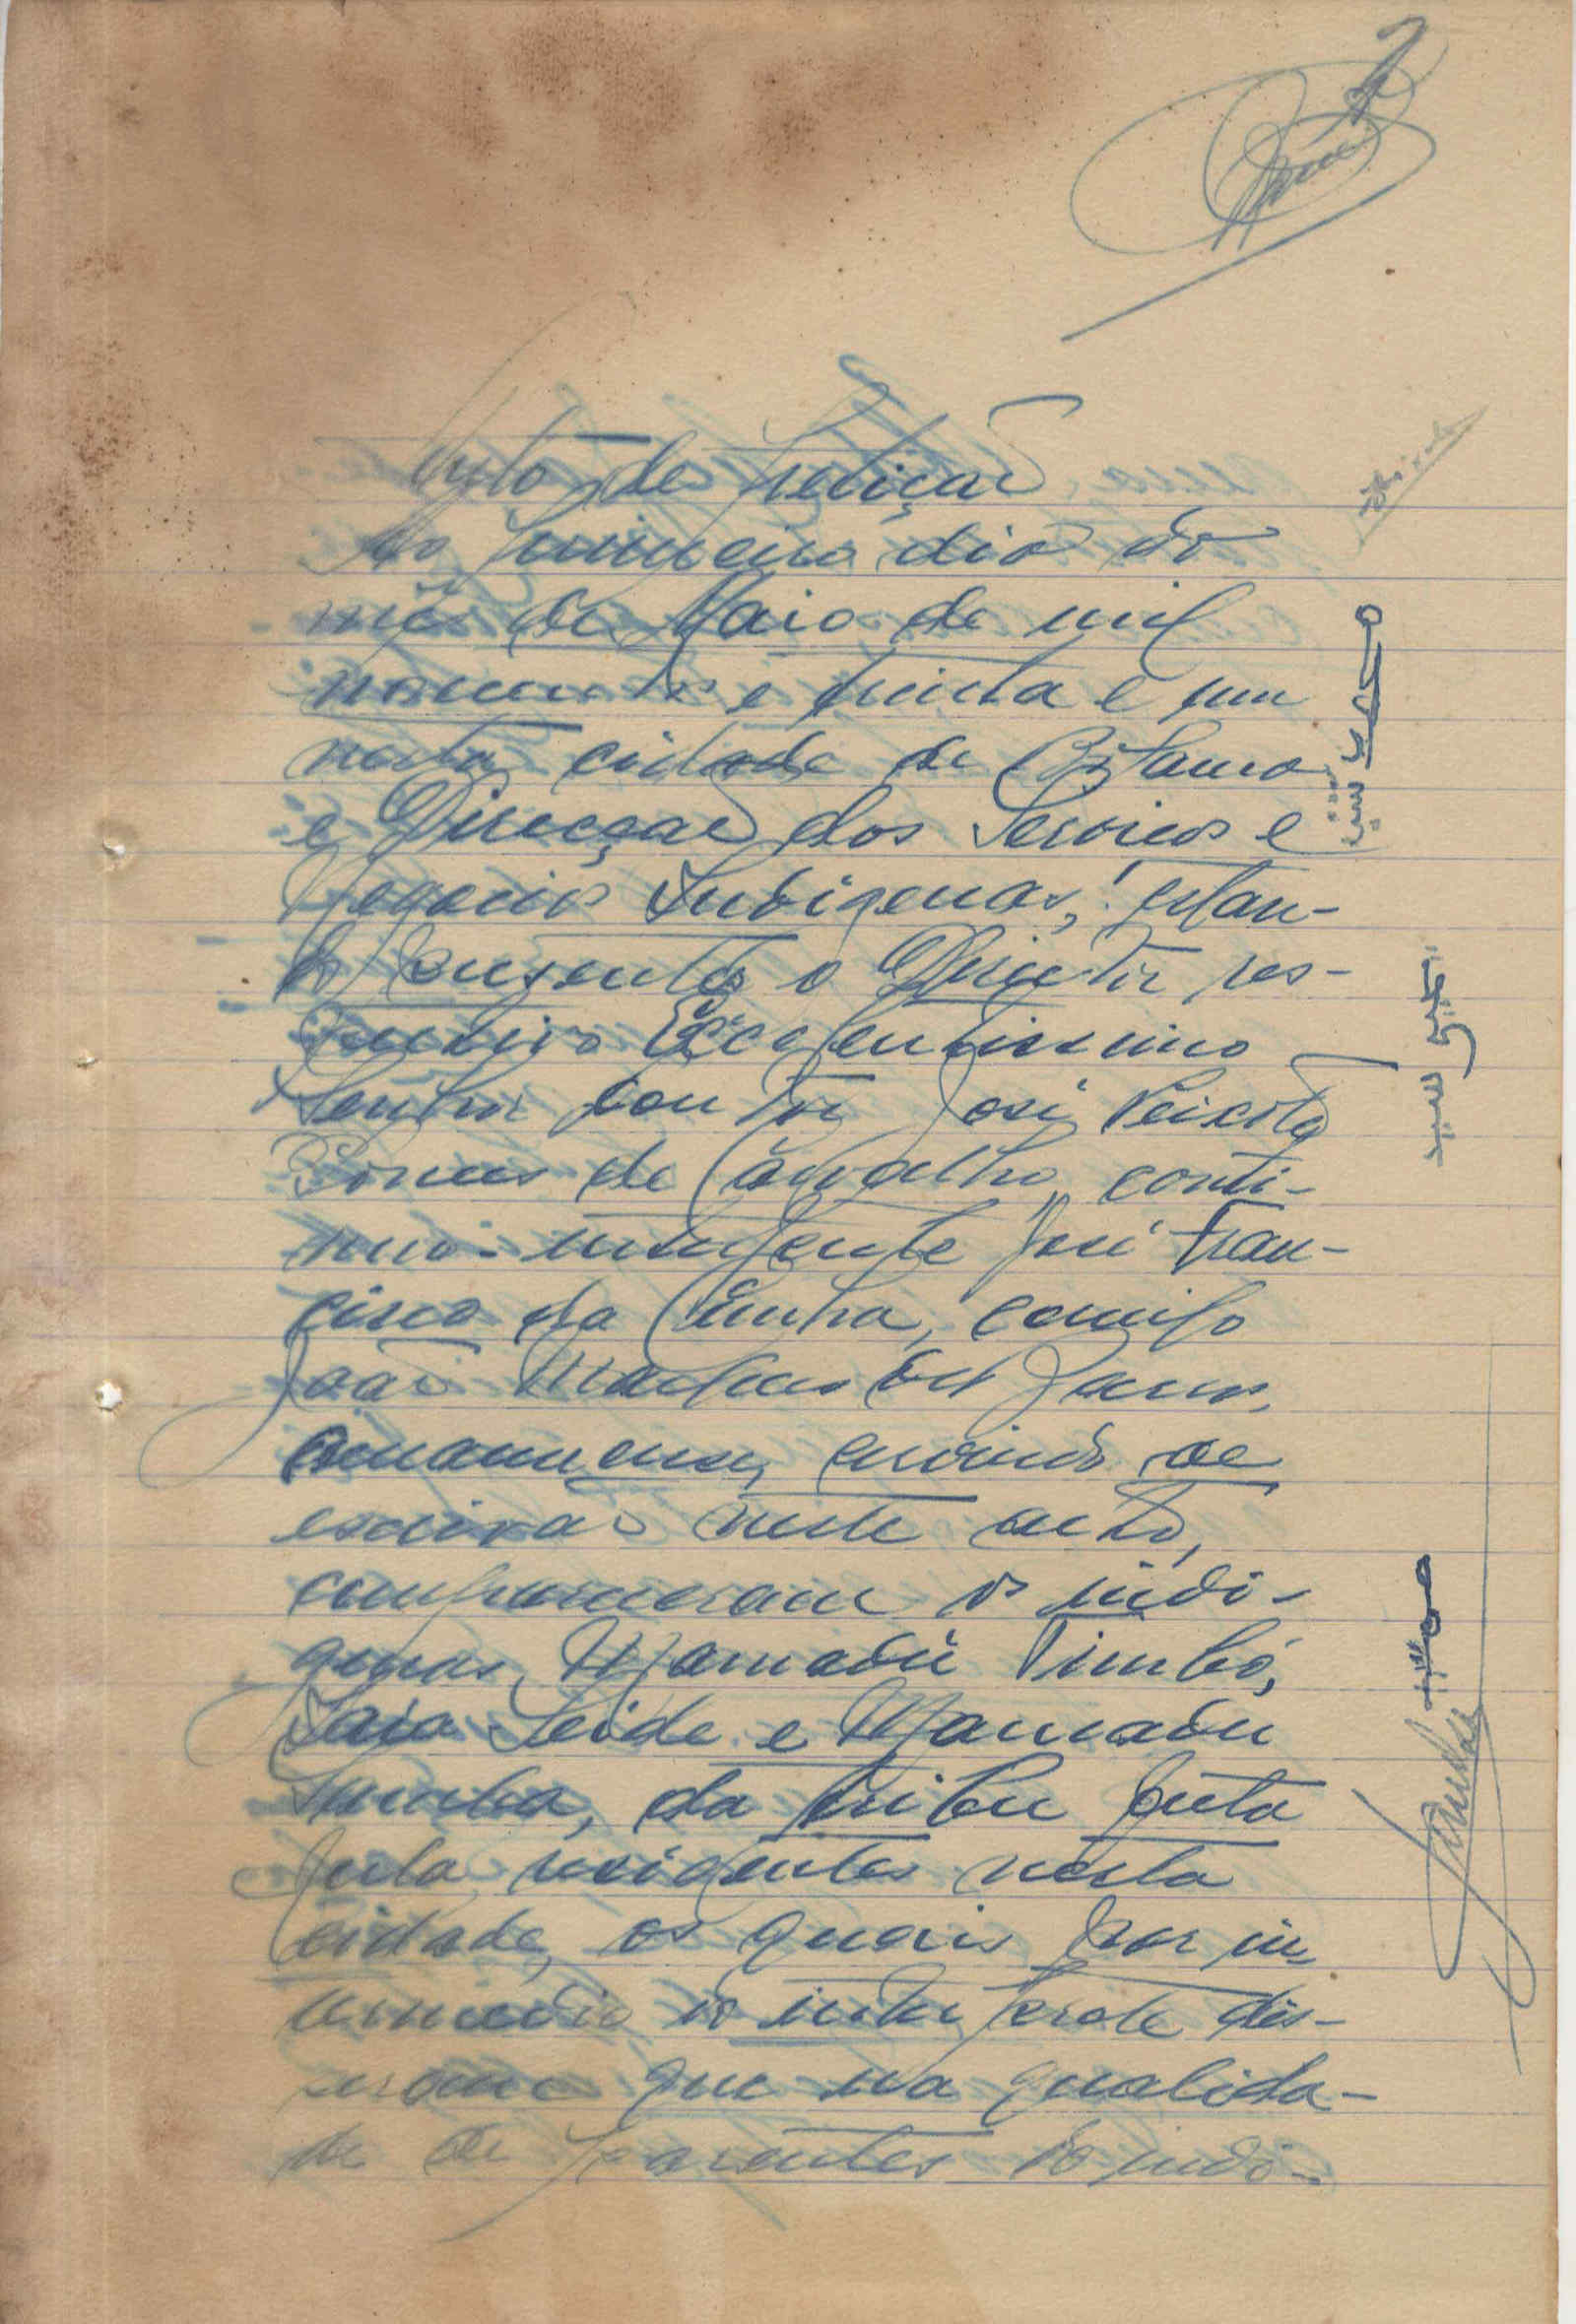 Auto de petição
Ao primeiro dia do
mês de Maio de mil
novecentos e trinta e um
nesta cidade de Bolama
e Direcção dos Serviços e
Negocios Indigenas, estan-
do presente o Director res-
pectivo Excelentissimo
Senhor Doutor José Peixoto
Ponces de Carvalho, conti-
nuo-interprete José Fran-
cisco da Cunha, comigo
João
amanuense, servindo de
escrivão neste acto,
compareceram os indi-
genas, Mamadú Timbó,
Saia Seide e Mamadu
da tribu futa
fula residentes nesta
cidade, os quais por in-
termedio do interprete dis-
seram que na qualida-
de de parentes do indi-